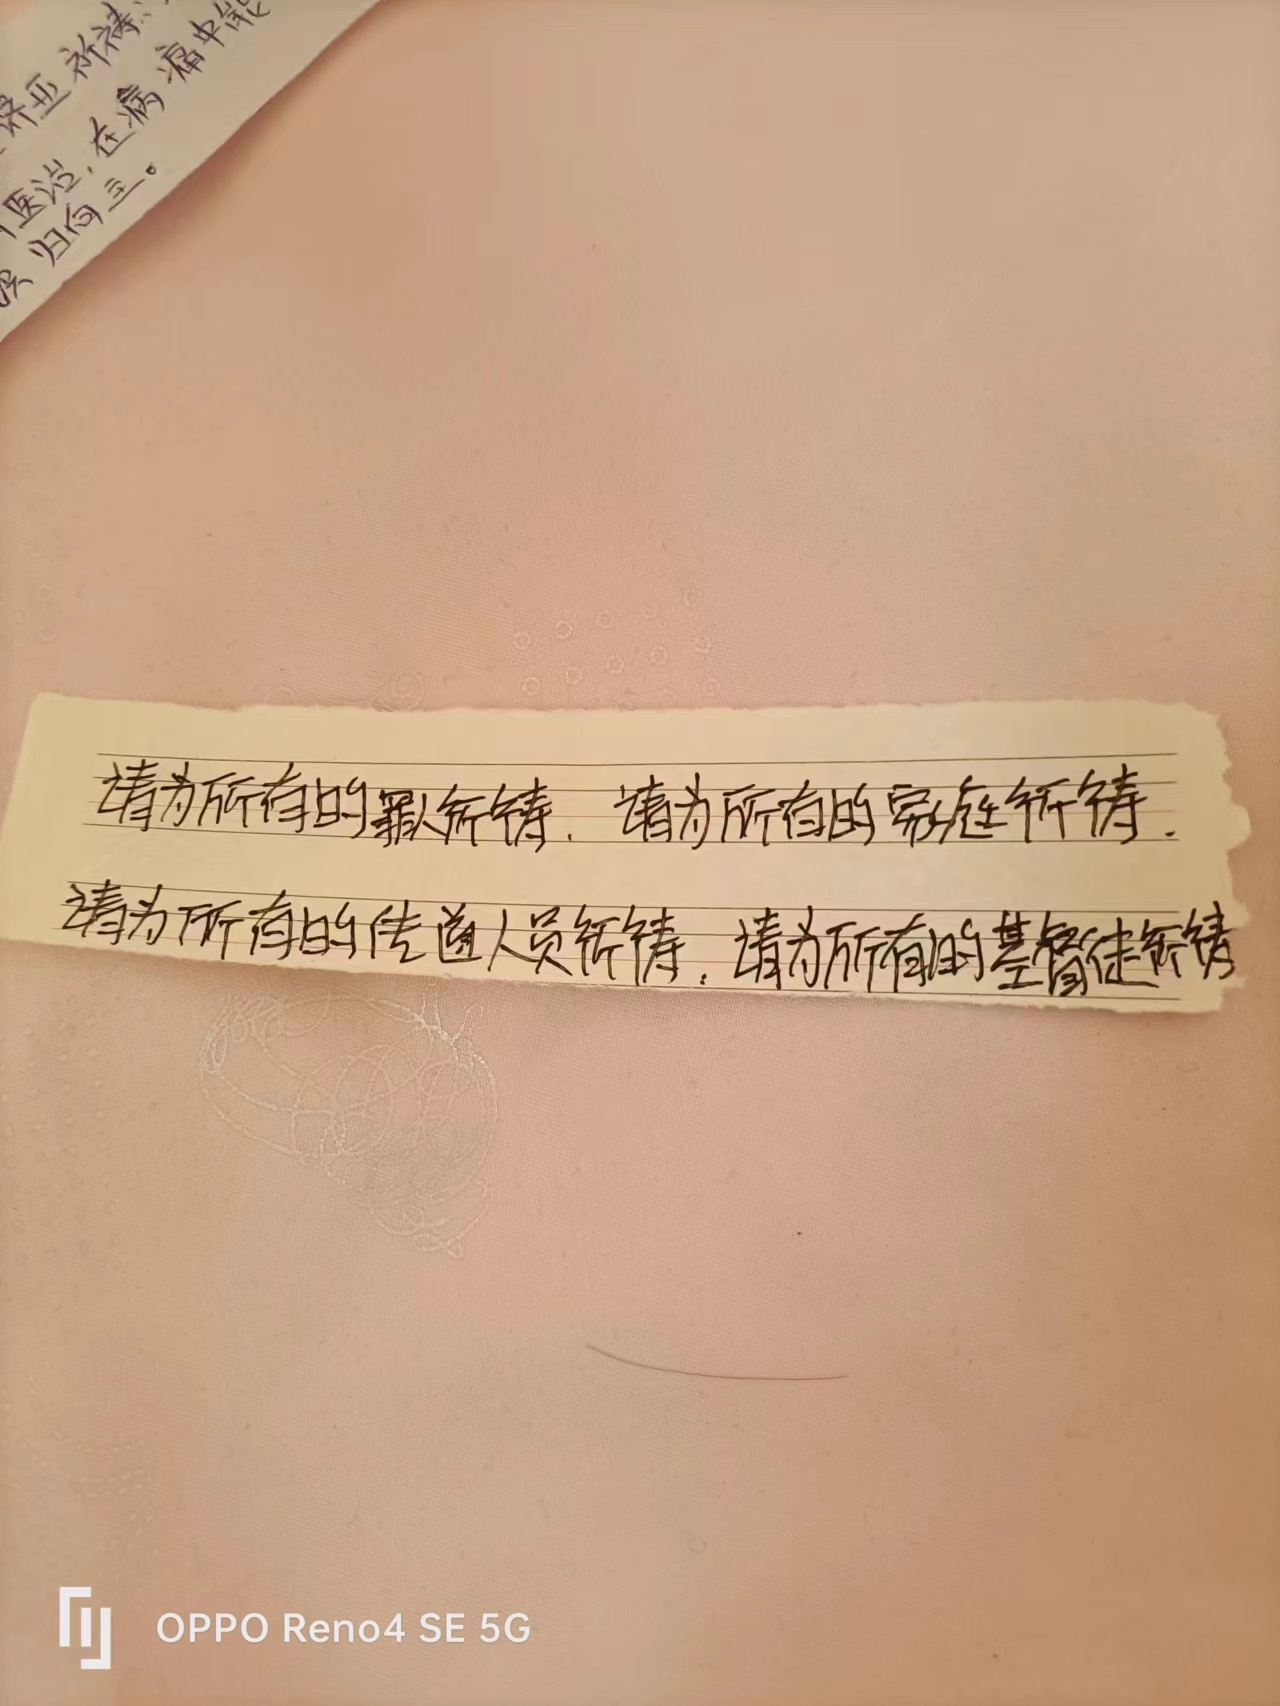 祈祷
亚祈祷
医治,在病痛中能
归向主。
请为所有的罪人祈祷.请为所有的家庭祈祷.
请为所有的传道人员祈祷.请为所有的基督徒祈祷
OPPO Reno4 SE 5G